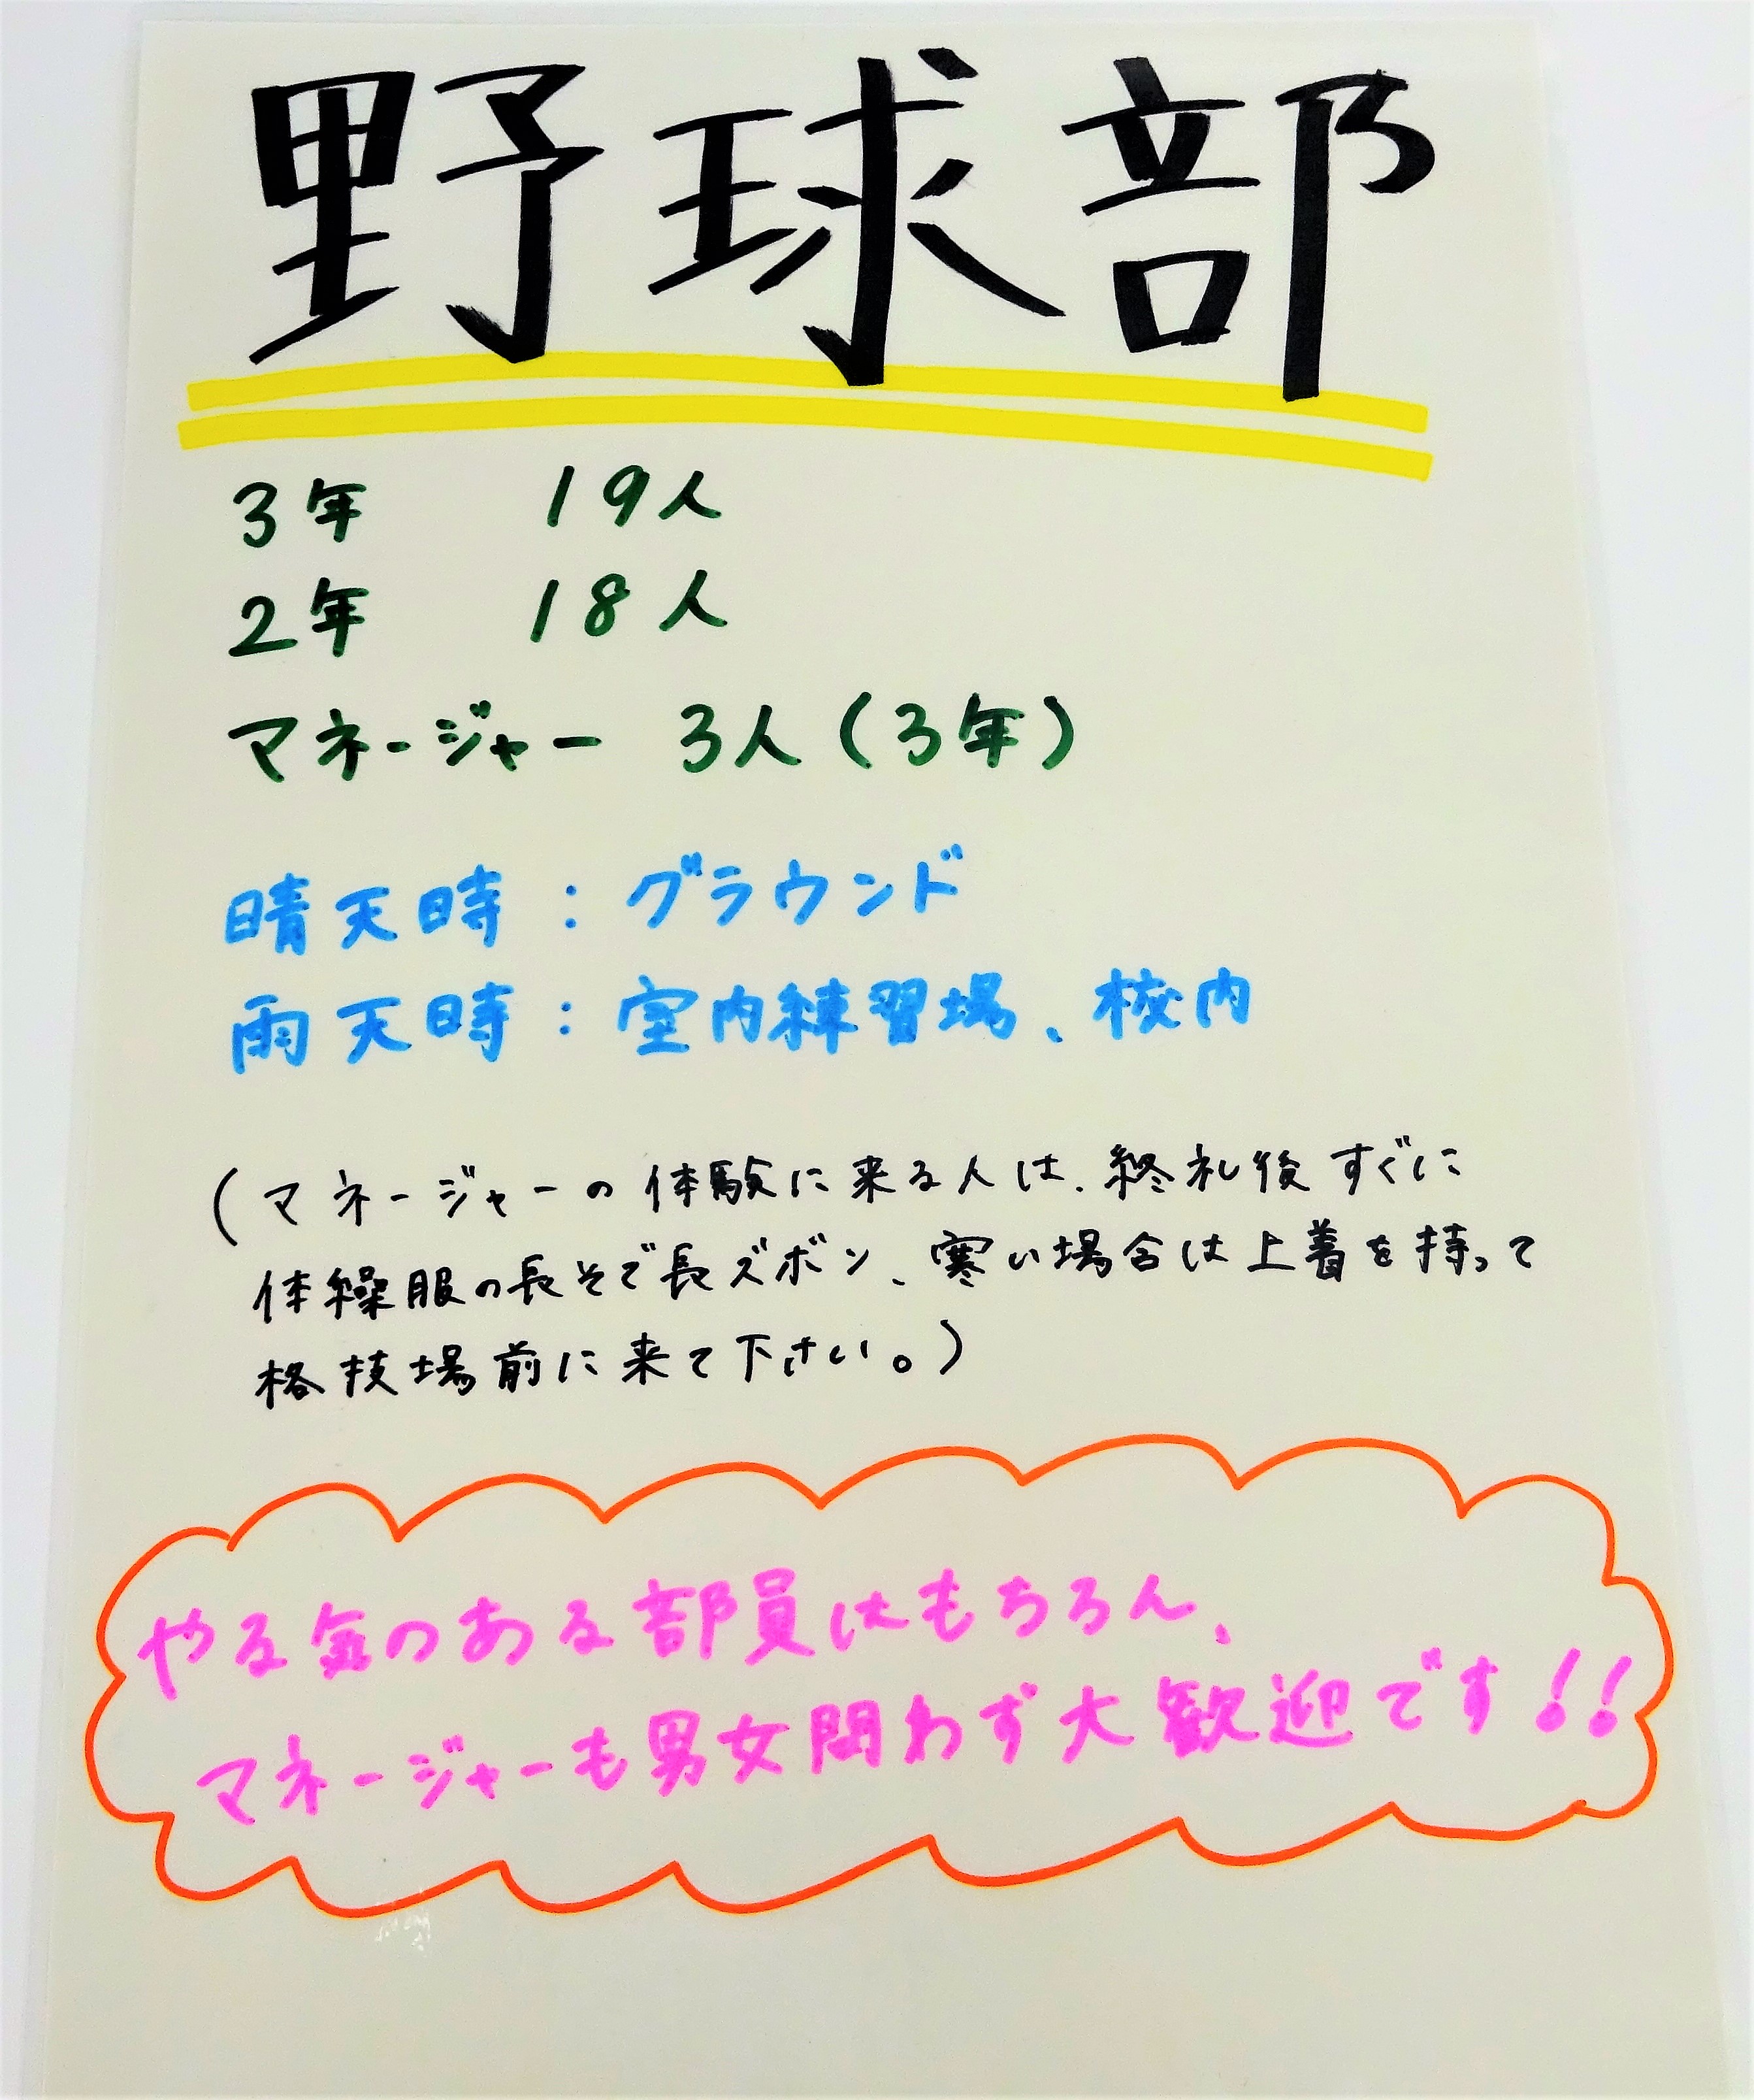 野球部
3年 19人
2年 18人
マネージャー 3人(3年)
晴天時：グラウンド
雨天時：室内練習場、校内
(マネージャーの体験に来る人は、終礼後すぐに
体操服の長そで長ズボン、寒い場合は上着を持って
格技場前に来て下さい。)
やる気のある部員はもちろん、
マネージャーも男女問わず大歓迎です!!